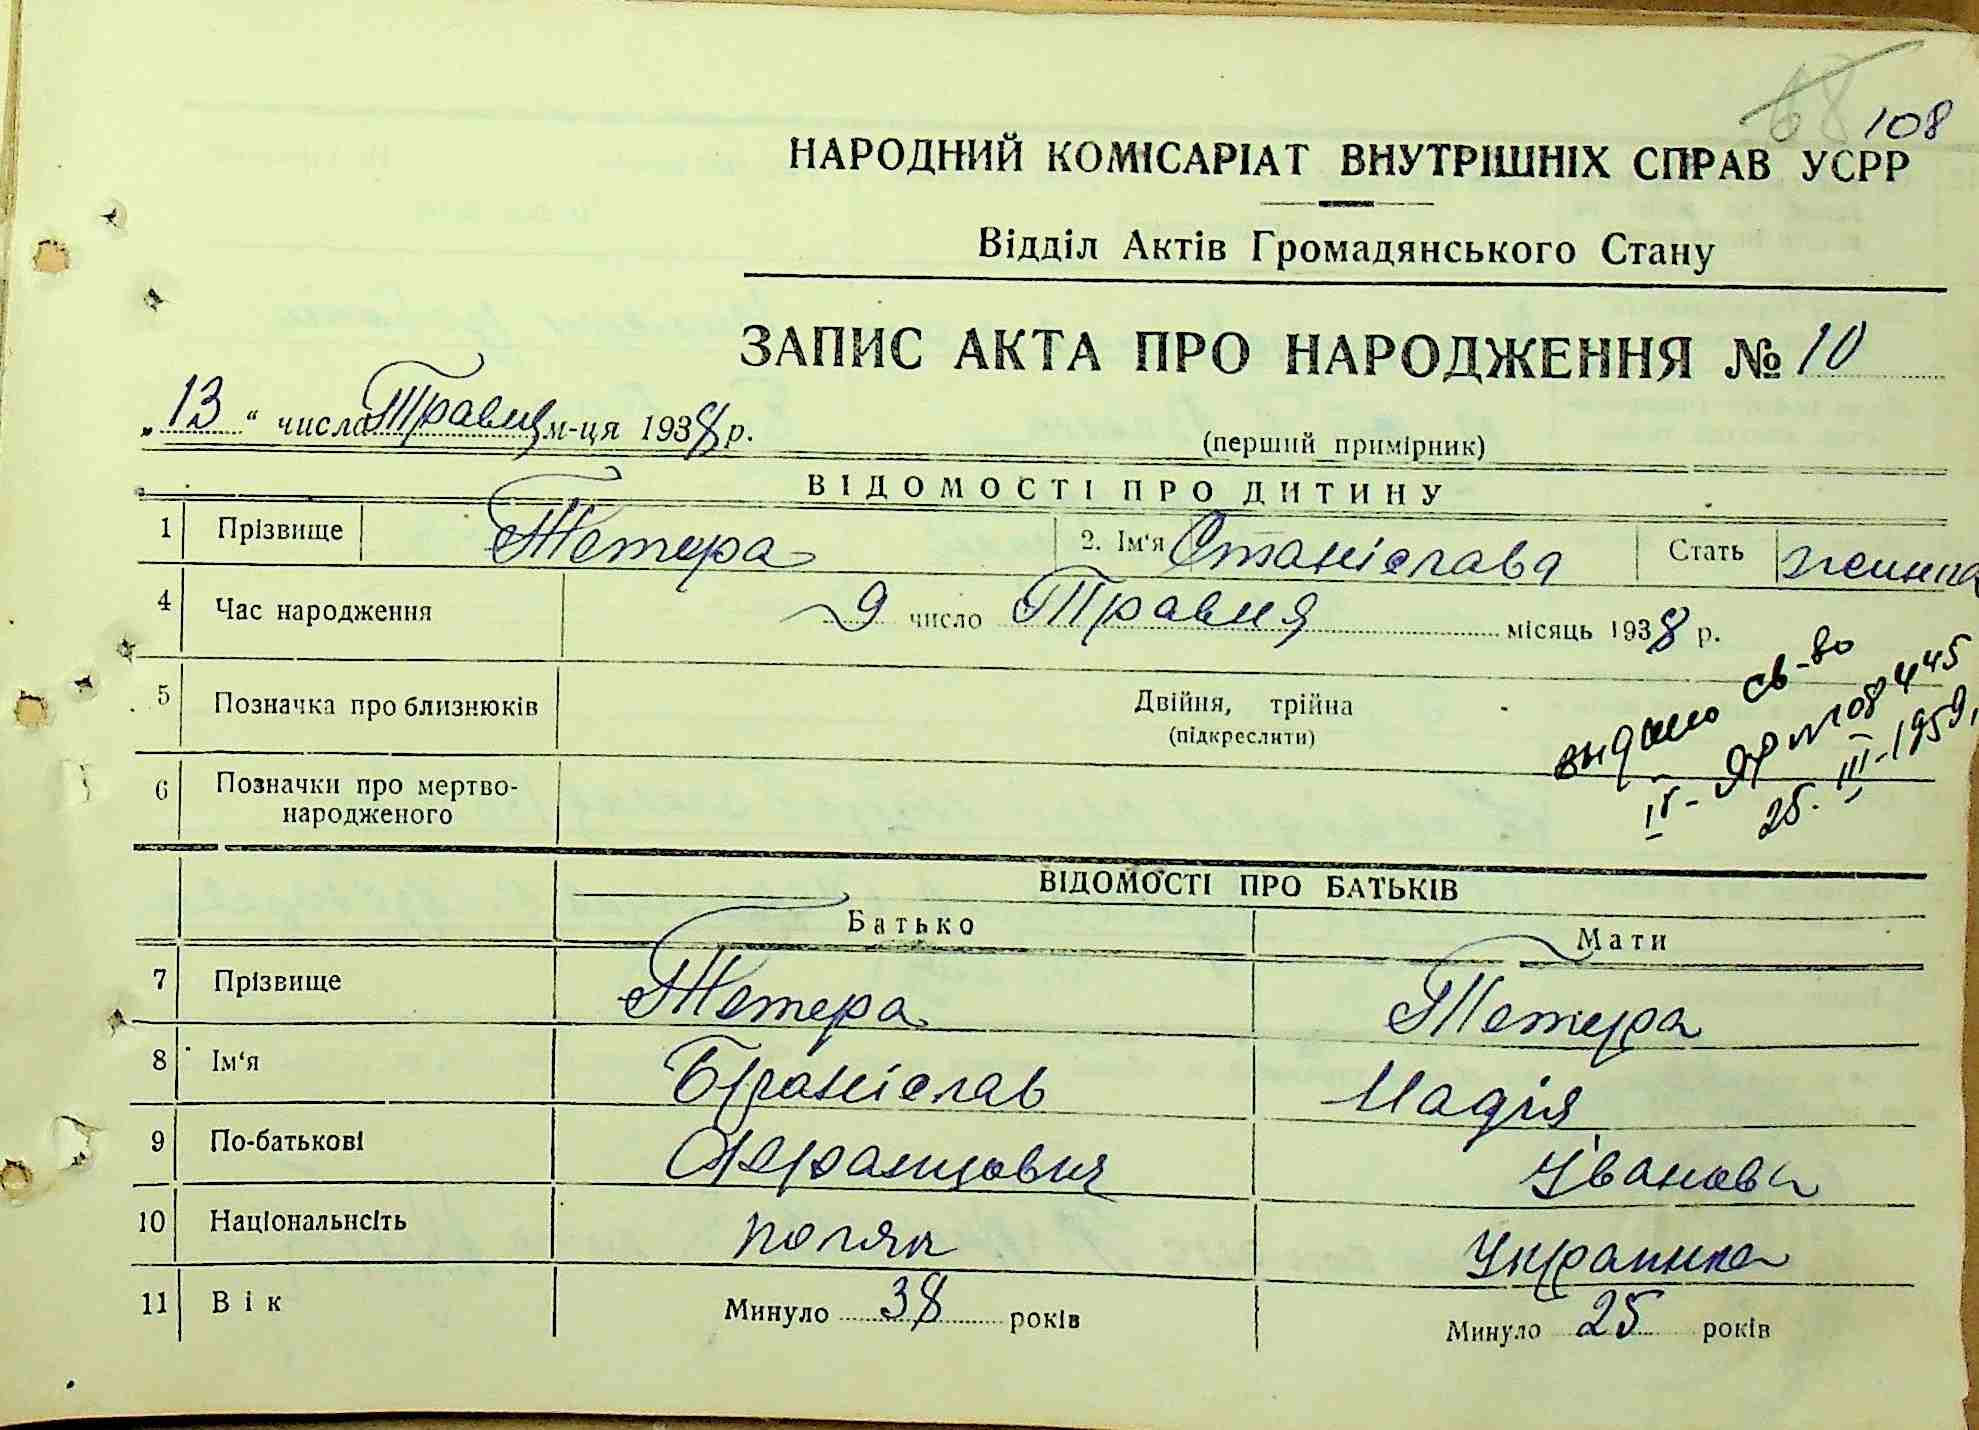 68 108
НАРОДНИЙ КОМІСАРІАТ ВНУТРІШНІХ СПРАВ УСРР
Відділ Актів Громадянського Стану
ЗАПИС АКТА ПРО НАРОДЖЕННЯ № 10
„13“ числа Травня м-ця 1938 р.
(перший примірник)
ВІДОМОСТІ ПРО ДИТИНУ
1 Прізвище Тетера 2. Ім'я Станіслава Стать жинка
4 Час народження 9 число Травня місяць 1938 р.
5 Позначка про близнюків Двійня, трійна
(підкреслити)
видано св-во
IV-ЯР № 108445
25. III-1959
6 Позначки про мертво-
народженого
ВІДОМОСТІ ПРО БАТЬКІВ
Батько Мати
7 Прізвище Тетера Тетера
8 Ім'я Броніслав Надія
9 По-батькові Францович Іванова
10 Національнсіть поляк Украинка
11 Вік Минуло 38 років Минуло 25 років